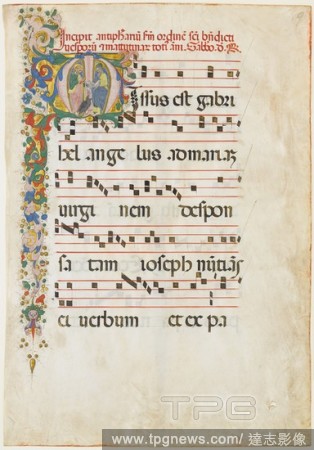 Incipit antiphanū fm ordinē sci bn̄dicti
uesperū i matutinar toti ani. Sabbo. d. R.
Missus est gabri
hel ange lus ad mariaʒ
uirgi nem despon
sa tam ioseph nūtiās
ei uerbum et ex pa
TPG
www.tpgnews.com/ 達志影像